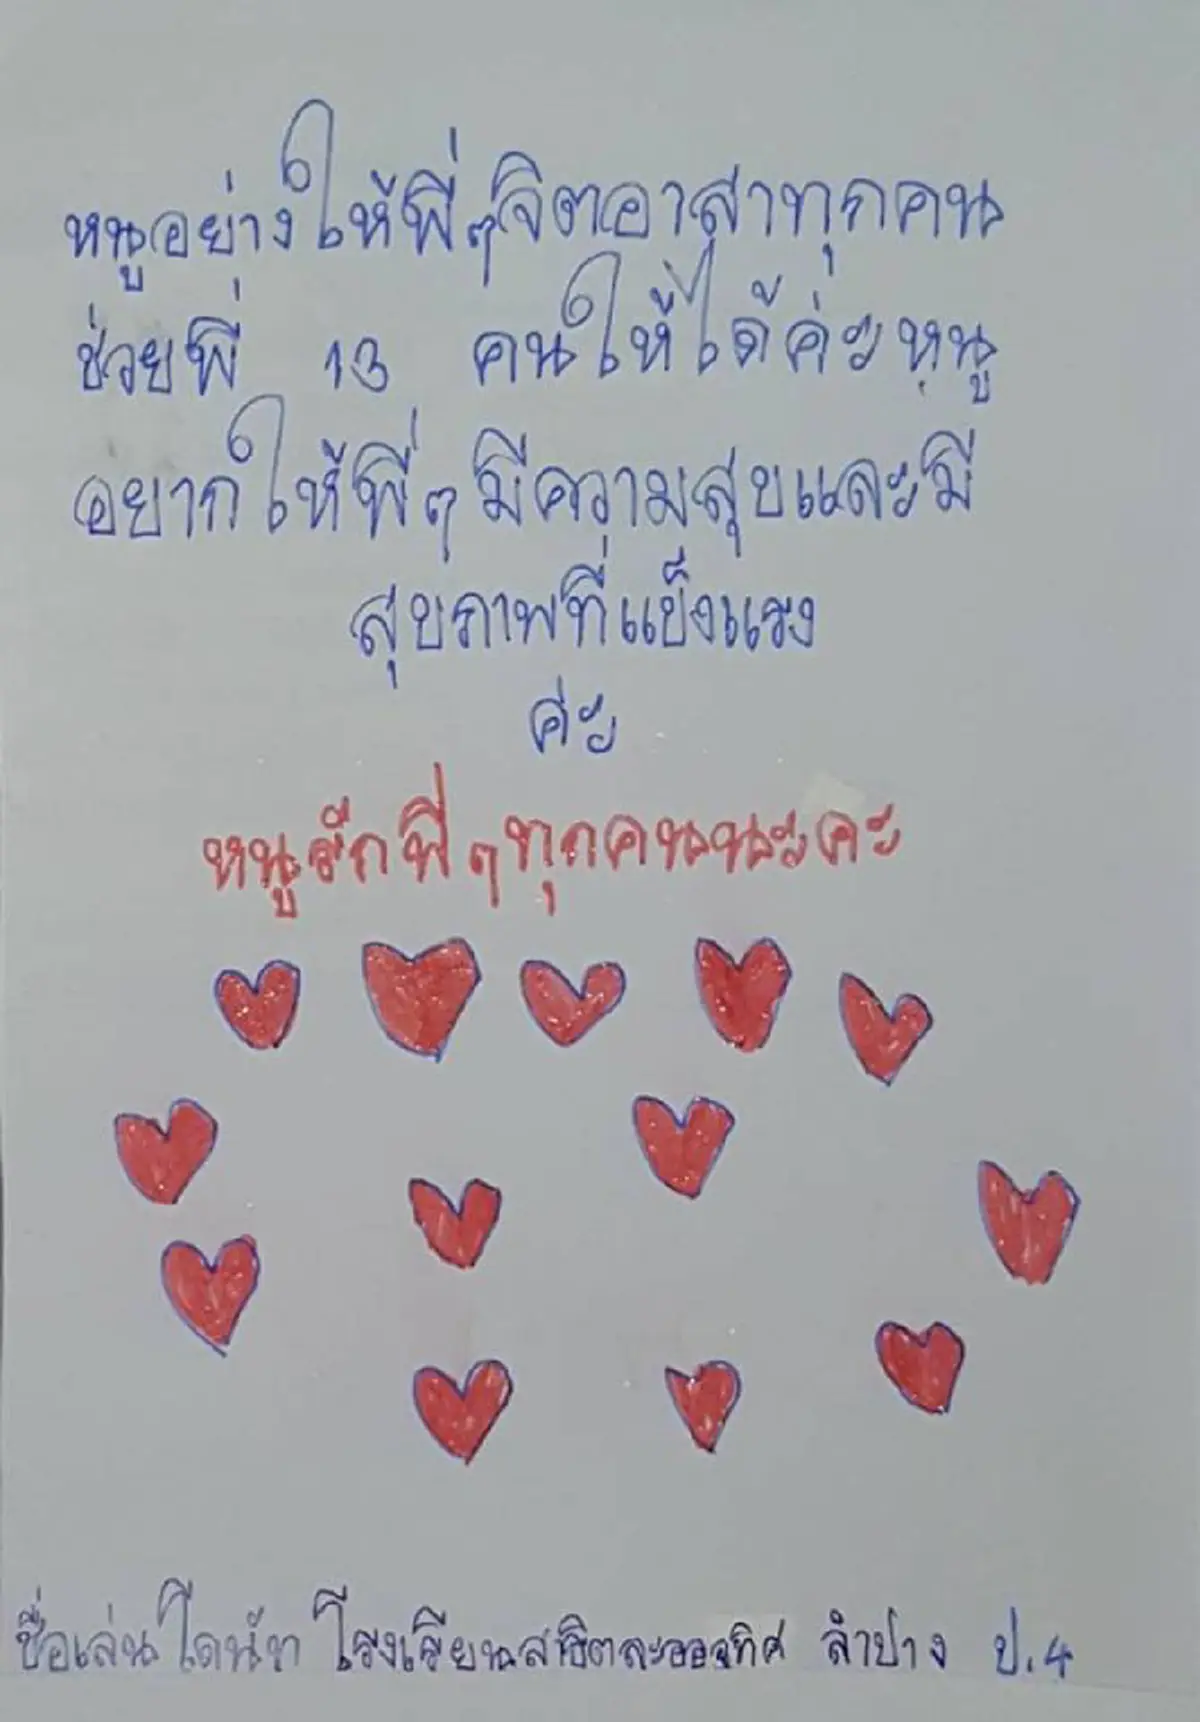 หนูอย่างให้พี่ๆจิตอาสาทุกคน
ช่วยพี่ 13 คนให้ได้ค่ะหนู
อยากให้พี่ๆมีความสุขและมี
สุขภาพที่แข็งแรง
ค่ะ
หนูรักพี่ๆทุกคนนะคะ
ชื่อเล่นไดนัท โรงเรียนสาธิตละอออุทิศ ลำปาง ป.4